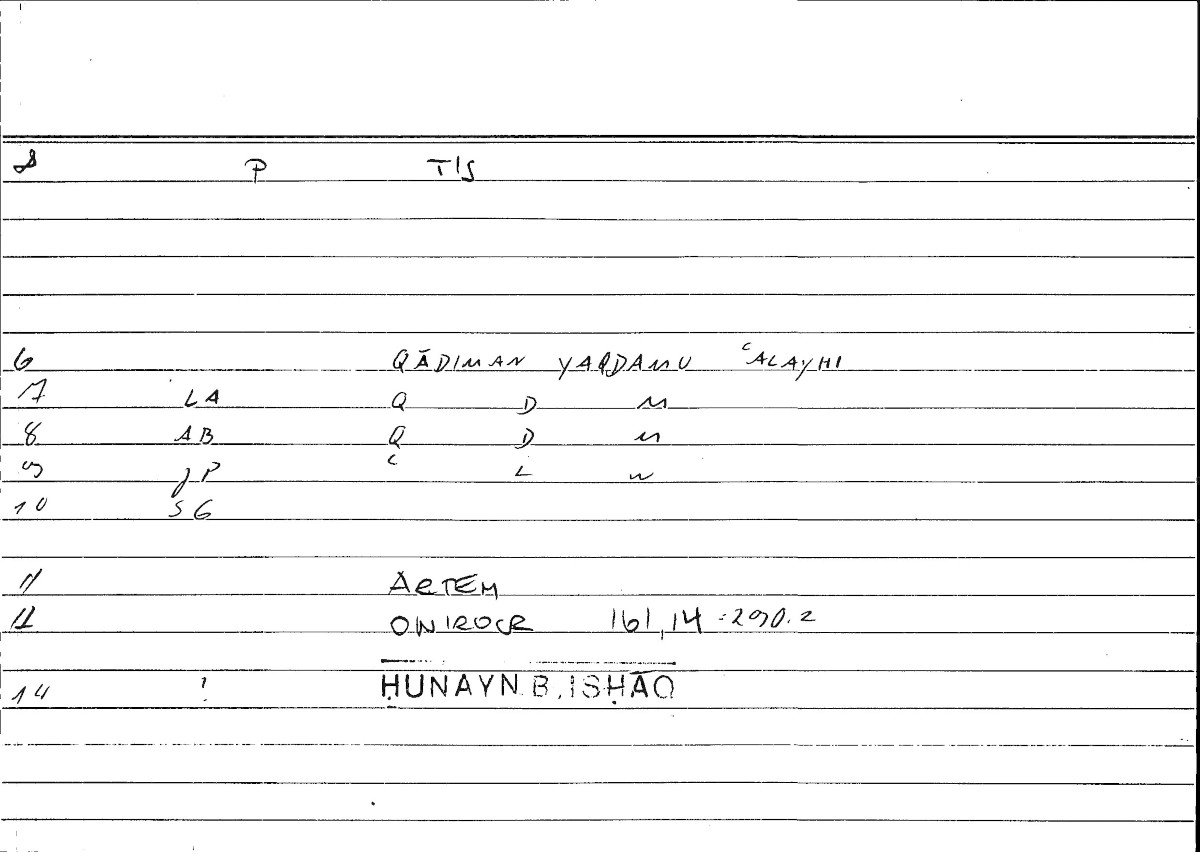 P T/S
6 QĀDIMAN YAQDAMU ʿALAYHI
7 LA Q D M
8 AB Q D M
9 JP ʿ L W
10 SG
11 ARTEM
12 ONIROCR 161,14 = 290.2
14 ! ḤUNAYN B. ISḤĀQ